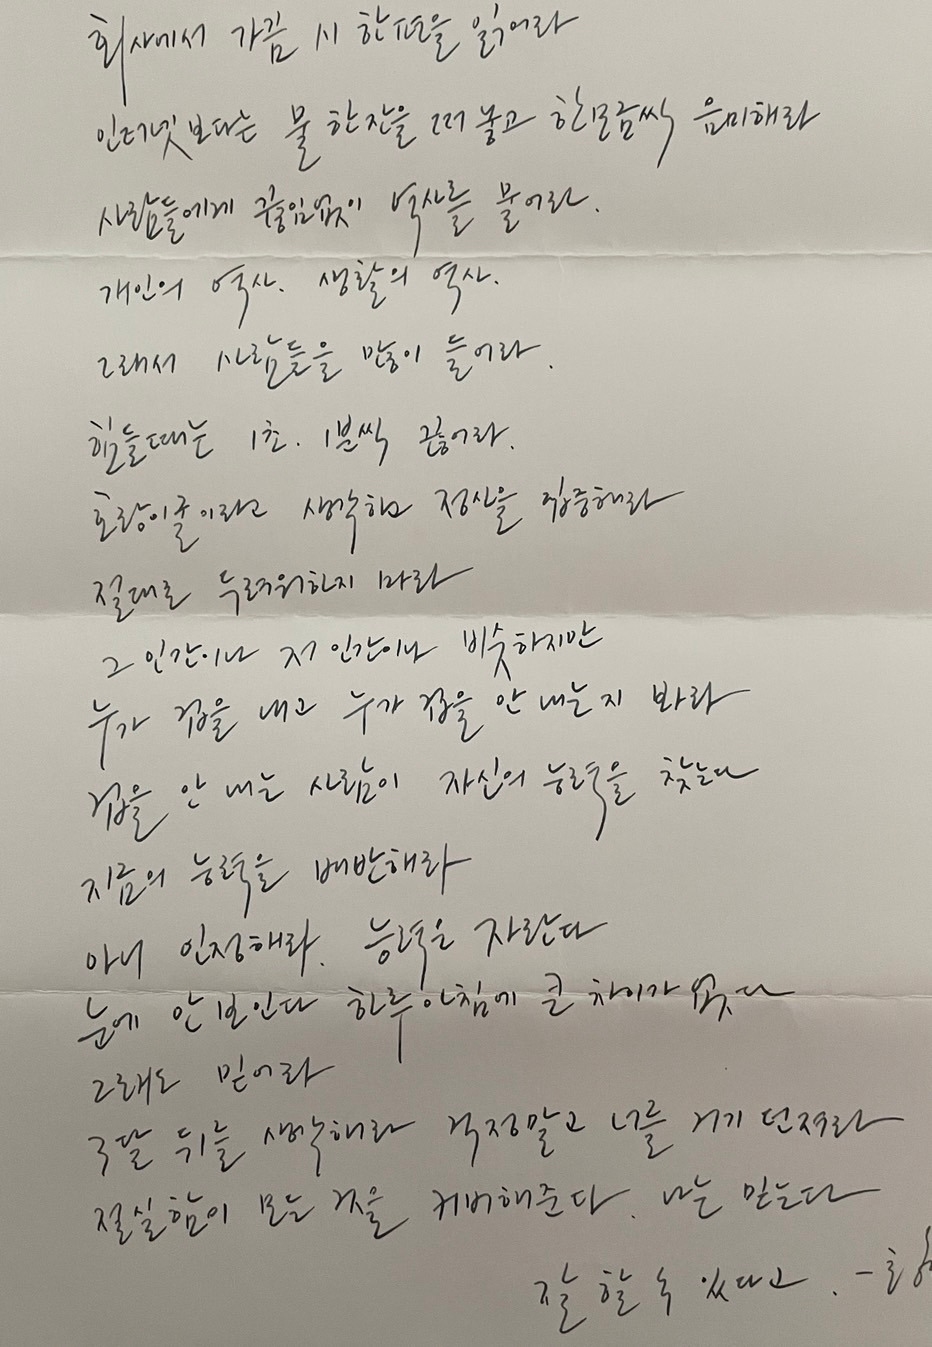 회사에서 가끔 시 한편을 읽어라
인터넷보다는 물 한잔을 떠 놓고 한모금씩 음미해라
사람들에게 끊임없이 역사를 물어라.
개인의 역사. 생활의 역사.
그래서 사람들을 많이 들어라.
힘들때는 1초. 1분씩 끊어라.
호랑이굴이라고 생각하고 정신을 집중해라
절대로 두려워하지 마라
그 인간이나 저 인간이나 비슷하지만
누가 겁을 내고 누가 겁을 안 내는지 봐라
겁을 안 내는 사람이 자신의 능력을 찾는다
지금의 능력을 배반해라
아니 인정해라. 능력은 자란다
눈에 안 보인다 하루아침에 큰 차이가 없다
그래도 믿어라
3달 뒤를 생각해라 걱정말고 너를 거기 던져라
절실함이 모든 것을 커버해준다. 나는 믿는다
잘 할 수 있다고. -